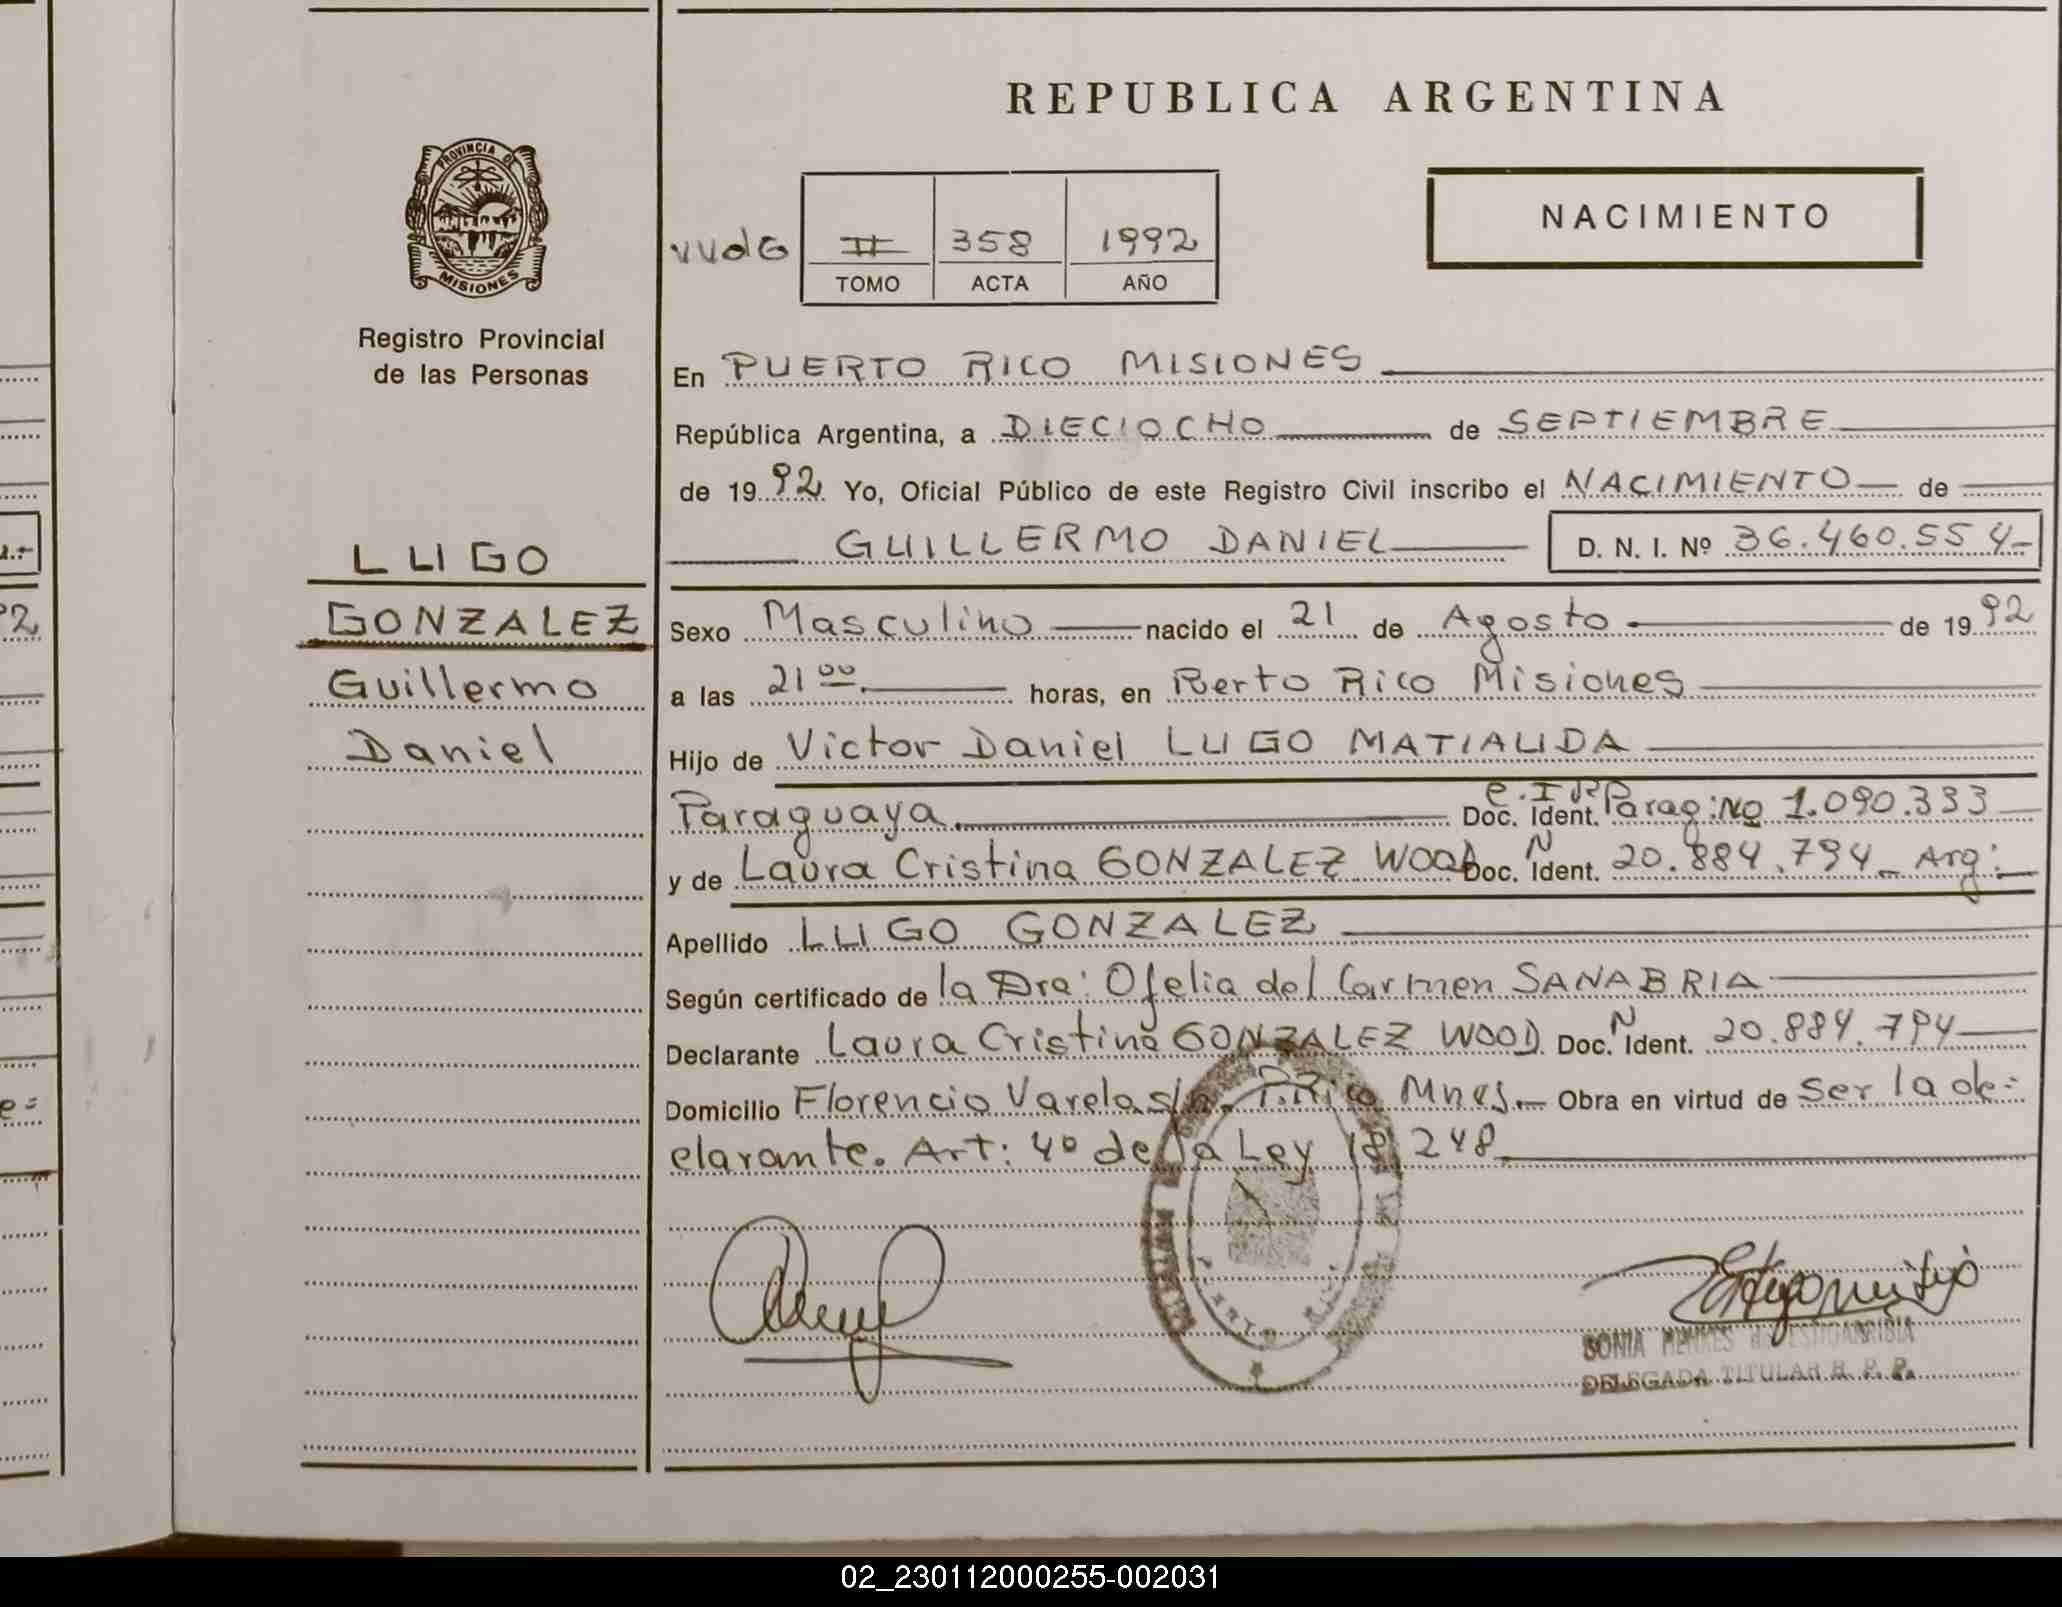 REPUBLICA ARGENTINA
PROVINCIA DE
MISIONES
Registro Provincial
de las Personas
II 358 1992
TOMO ACTA AÑO
NACIMIENTO
En PUERTO RICO MISIONES
República Argentina, a DIECIOCHO de SEPTIEMBRE
de 1992 Yo, Oficial Público de este Registro Civil inscribo el NACIMIENTO de
GUILLERMO DANIEL D. N. I. Nº 36.460.554
LUGO
GONZALEZ
Guillermo
Daniel
Sexo Masculino nacido el 21 de Agosto de 1992
a las 21 00 horas, en Perto Rico Misiones
Hijo de Victor Daniel LUGO MATIAUDA
Paraguaya Doc. Ident. Parag: No 1.090.333
y de Laura Cristina GONZALEZ WOOD Doc. N Ident. 20.884.794 Arg:
Apellido LUGO GONZALEZ
Según certificado de la Dra: Ofelia del Carmen SANABRIA
Declarante Laura Cristina GONZALEZ WOOD Doc. N Ident. 20.884.794
Domicilio Florencio Varela s/n. P. Rico Mnes. Obra en virtud de Ser la de=
clarante. Art: 4º de la Ley 18.248
SONIA
DELEGADA TITULAR R. P. P.
92
e=
02_230112000255-002031